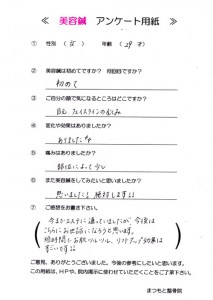 ≪ 美容鍼 アンケート用紙 ≫
① 性別 ( 女 ) 年齢 ( 29 才)
② 美容鍼は初めてですか? 何回目ですか?
初めて
③ ご自分の顔で気になるところはどこですか?
目元、フェイスラインのたるみ
④ 変化や効果はありましたか?
ありました
⑤ 痛みはありましたか?
部位によって少し
⑥ また美容鍼をしてみたいと思いましたか?
思いました! 絶対します!!
⑦ ご感想をお書き下さい。
今までエステに通っていましたが、今後は
こちらにお世話になろうと思います。
短時間でお肌ツルツル、リフトアップ効果は
すごいです!!
ご意見、ありがとうございました。今後の参考にしたいと思います。
この用紙は、HPや、院内掲示に使わせていただくことをご了承下さい。
まつもと整骨院